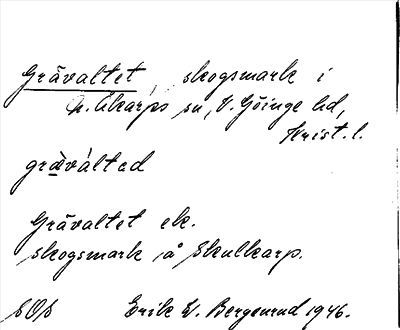 Grävaltet, skogsmark i
N. Åkarps sn, V. Göinge hd,
Krist. l.
gràvàltad
Grävaltet ek.
skogsmark på Skulkarp.
SOS Erik W. Bergenrud 1946.